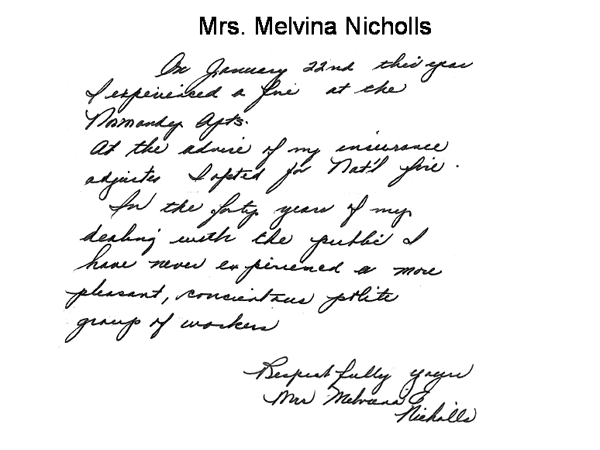 Mrs. Melvina Nicholls
On January 22nd this year
I experienced a fire at the
Normandy Apts.
At the advise of my insurance
adjuster I opted for Nat'l fire.
In the forty years of my
dealing with the public I
have never experienced a more
pleasant, concientous polite
group of workers
Respectfully yours
Mrs Melvina
Nicholls